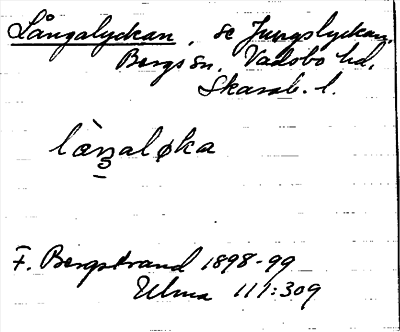 Långalyckan, se Jungslyckan,
Bergs sn, Vadsbo hd,
Skarab. l.
F. Bergstrand 1898-99
Ulma 111:309